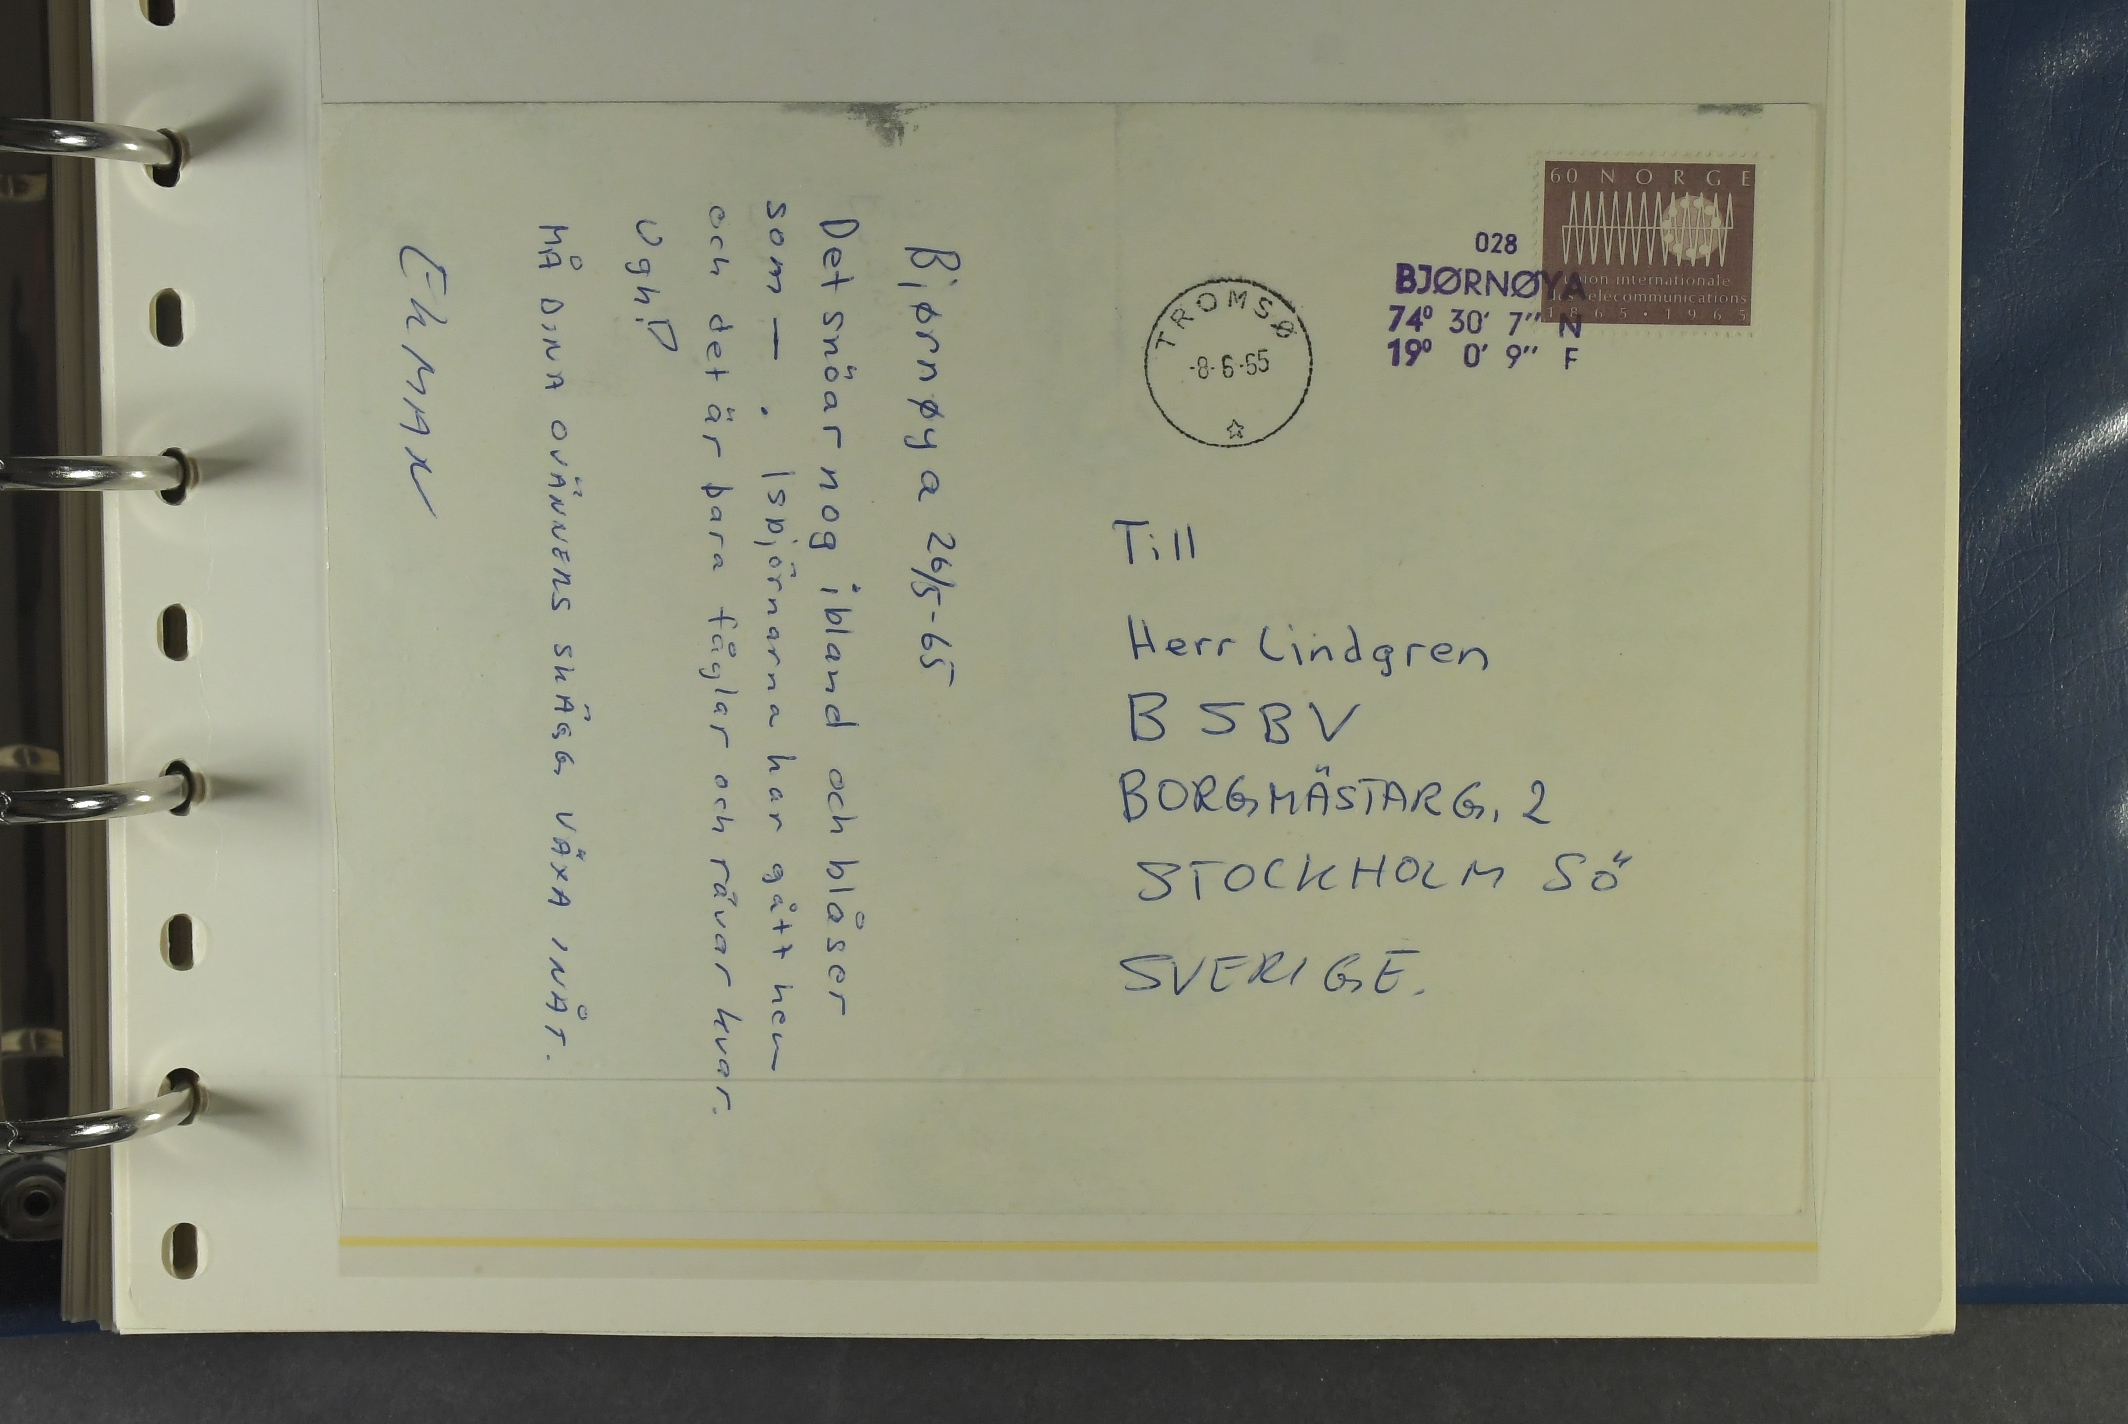 60 NORGE
Union internationale
des télécommunications
1865 · 1965
028
BJØRNØYA
74° 30' 7" N
19° 0' 9" E
TROMSØ
-8-6-65
Till
Herr Lindgren
B 5 B V
BORGMÄSTARG. 2
STOCKHOLM SÖ
SVERIGE.
Bjørnøya 26/5-65
Det snöar nog ibland och blåser
som — . Isbjörnarna har gått hem
och det är bara fåglar och rävar kvar.
Ugh!
MÅ DINA OVÄNNERS SKÄGG VÄXA INÅT.
EhMAN